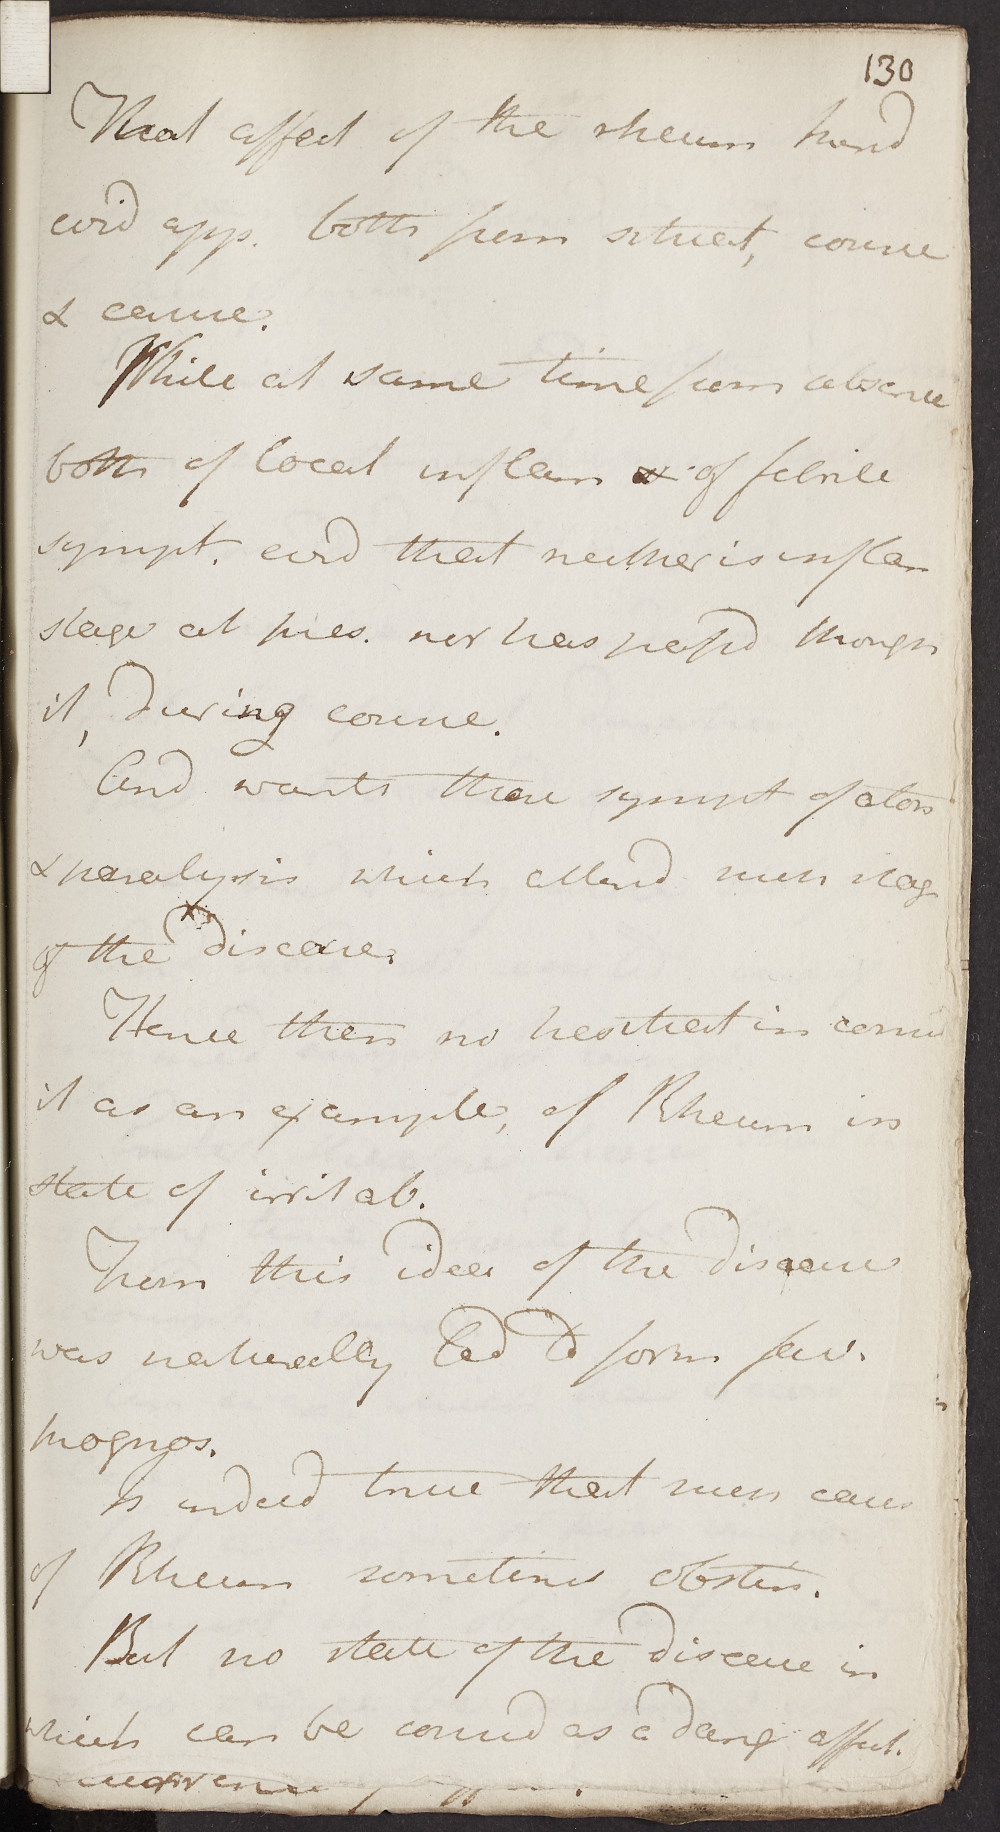 130
That affect of the rheum kind
evid app. both from situat, course
& cause.
While at same time from absence
both of local inflam & of febrile
sympt. evid that neither is inflam
stage at pres. nor has passd through
it, during course.
And wants those sympt of aton
& paralysis which attend such stag
of the disease.
Hence then no hesitat in consid
it as an example, of Rheum in
state of irritab.
From this idea of the disease
was naturally led to form fav.
prognos.
Is indeed true that such cases
of Rheum sometimes obstin.
But no state of the disease in
which can be consid as a dang affect.